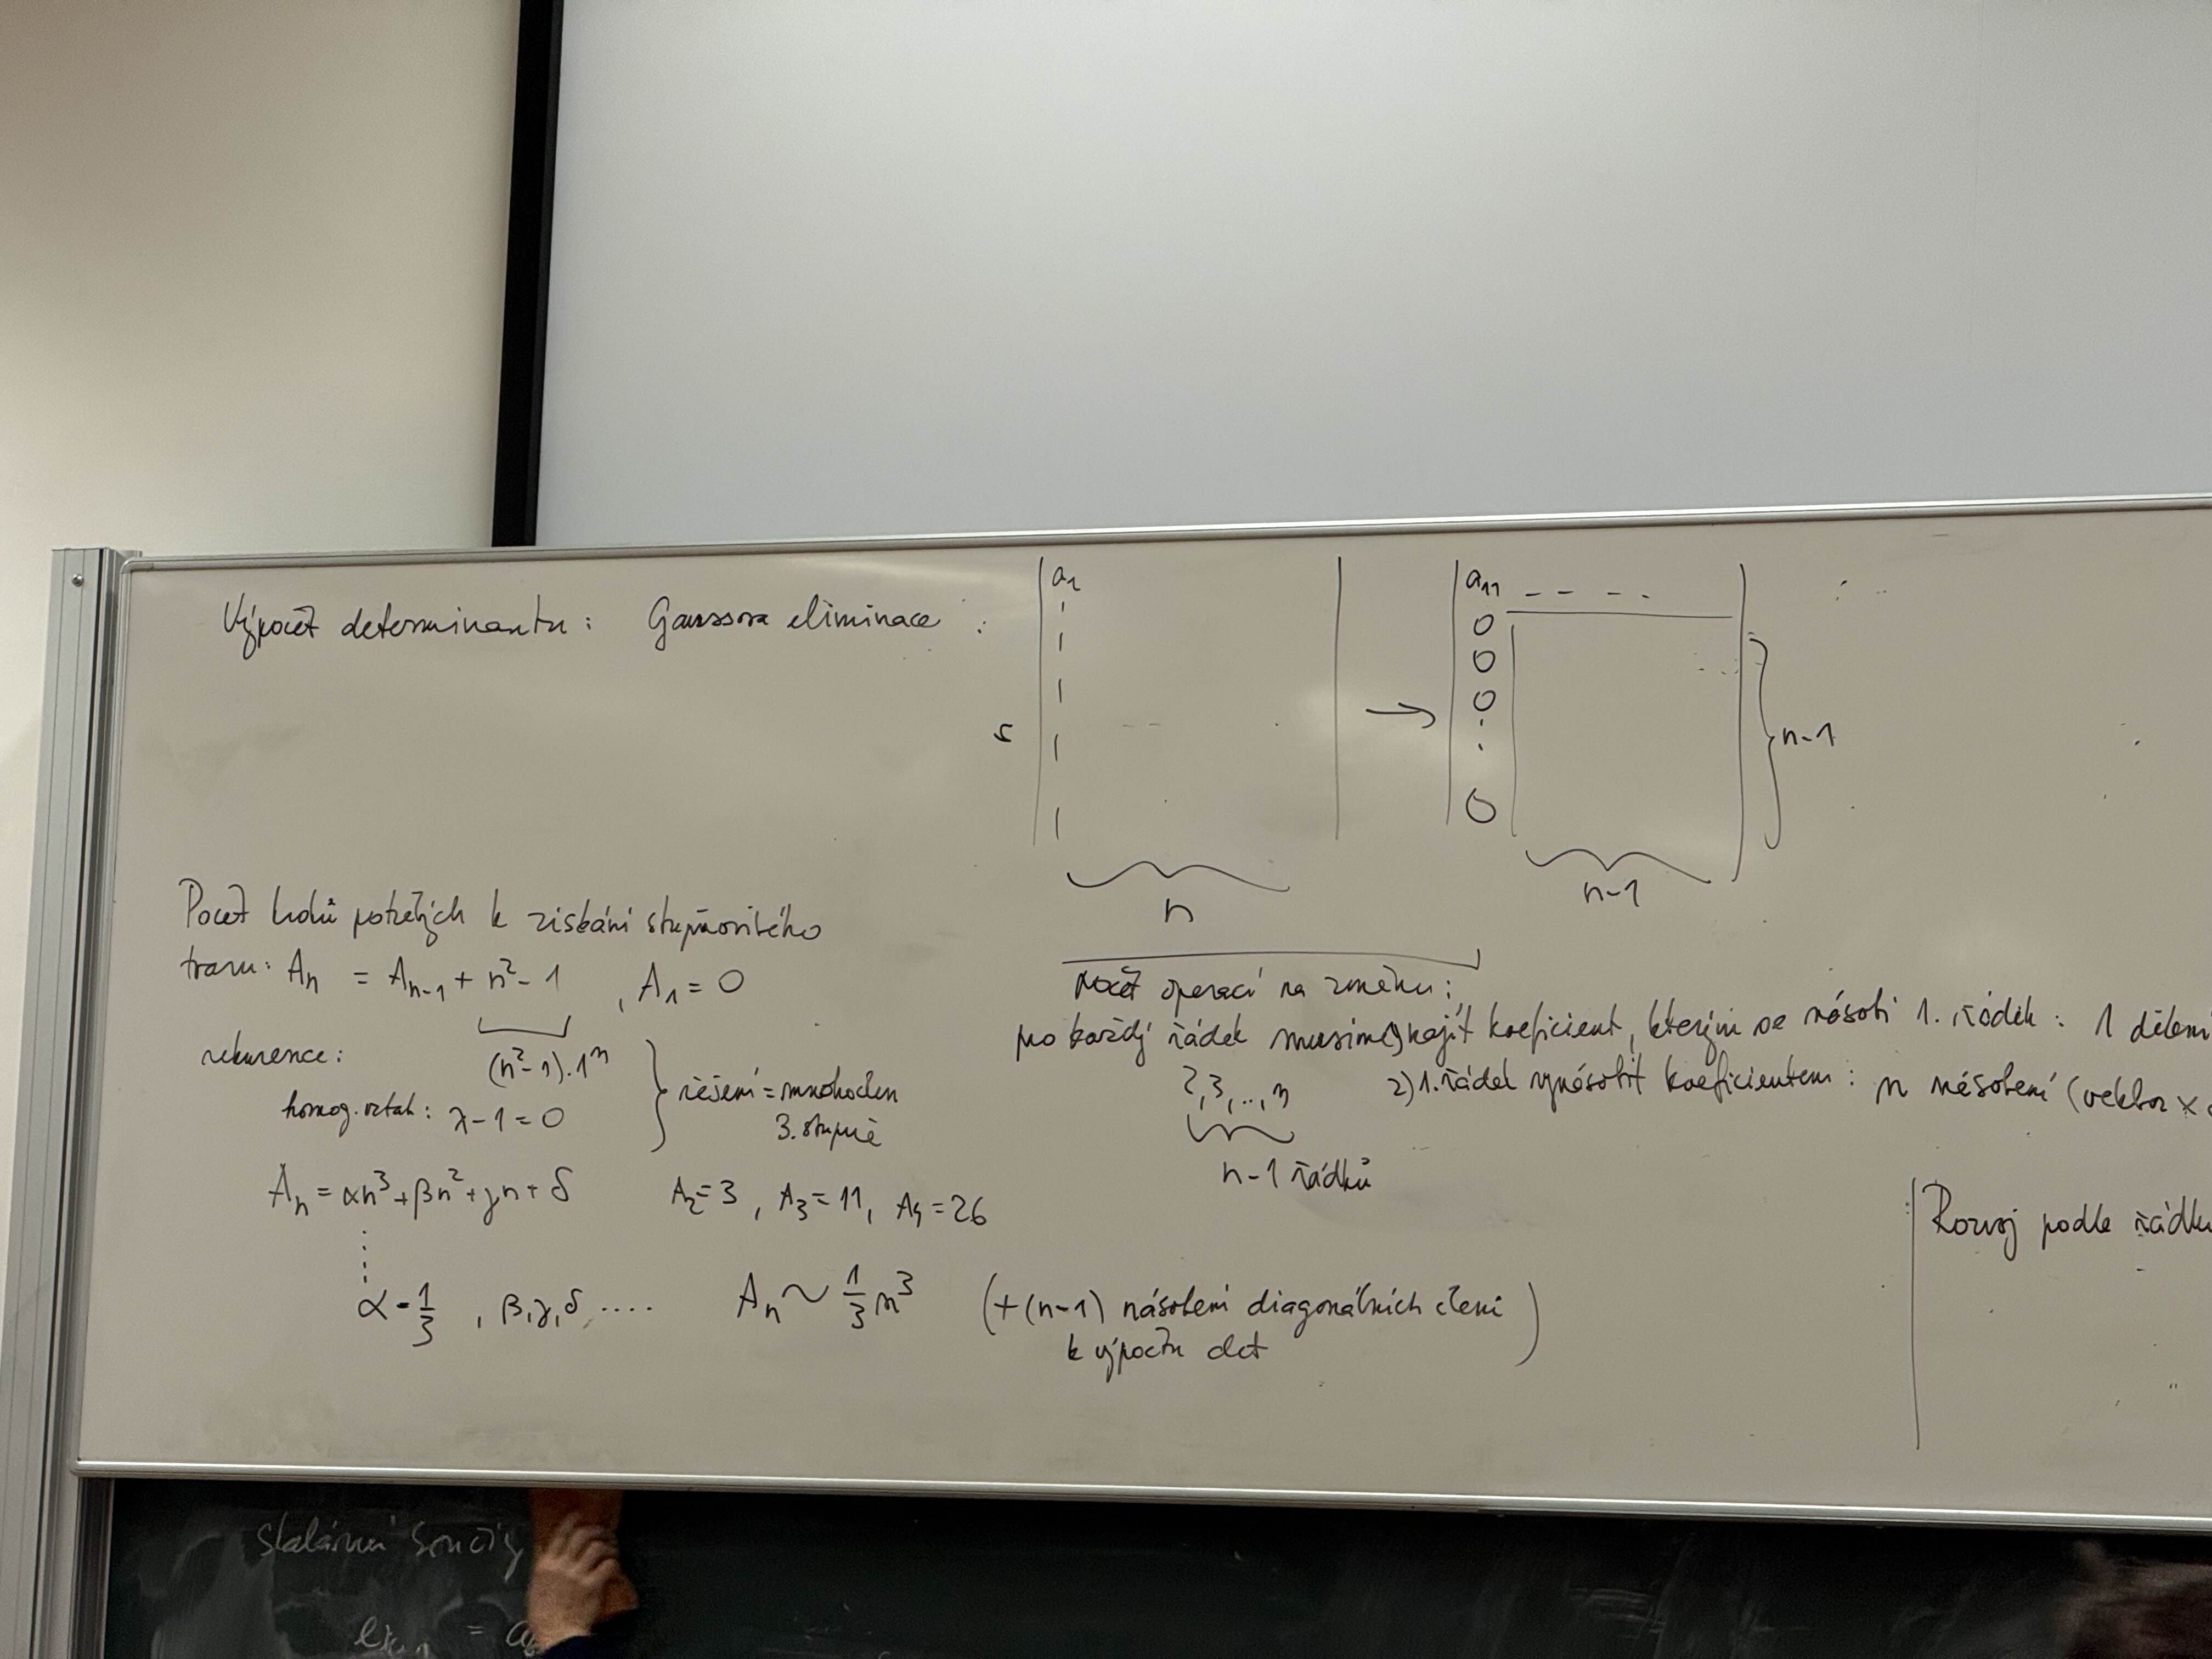 Výpočet determinantu: Gaussova eliminace :
a₁
a₁₁ - - - -
0
0
0
0
n-1
n
n-1
Počet kroků potřebných k získání stupňovitého
tvaru: Aₙ = Aₙ₋₁ + n² - 1 , A₁ = 0
(n²-1).1ⁿ
rekurence:
homog. vztah: λ - 1 = 0
řešení = mnohočlen
3. stupně
Aₙ = αn³ + βn² + γn + δ
A₂ = 3 , A₃ = 11, A₄ = 26
α = 1/3 , β, γ, δ, ....
Aₙ ~ 1/3 n³
(+(n-1) násobení diagonálních členů
k výpočtu det)
Počet operací na změnu:
pro každý řádek musíme 1) najít koeficient, kterým se násobí 1. řádek : 1 dělení
2,3,..,n
2) 1. řádek vynásobit koeficientem : n násobení (vektor ×
n-1 řádků
Rozvoj podle řádku
skalární součiny